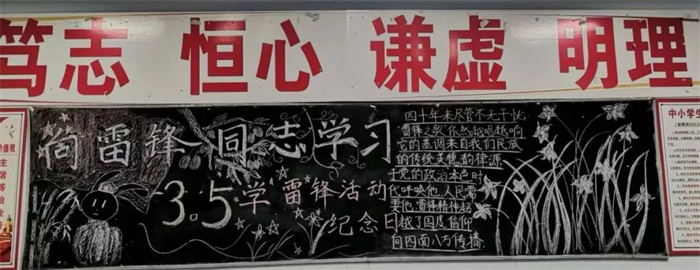 笃志 恒心 谦虚 明理
向雷锋同志学习
3.5学雷锋活动
纪念日
四十年来尽管不无干扰
雷锋之歌依然越唱越响
它的基调来自我们民族
的传统美德 韵律源
于党的政治本色 时
代呼唤他 人民需
要他 雷锋精神超
越了国度信仰
向四面八方传播
中小学生